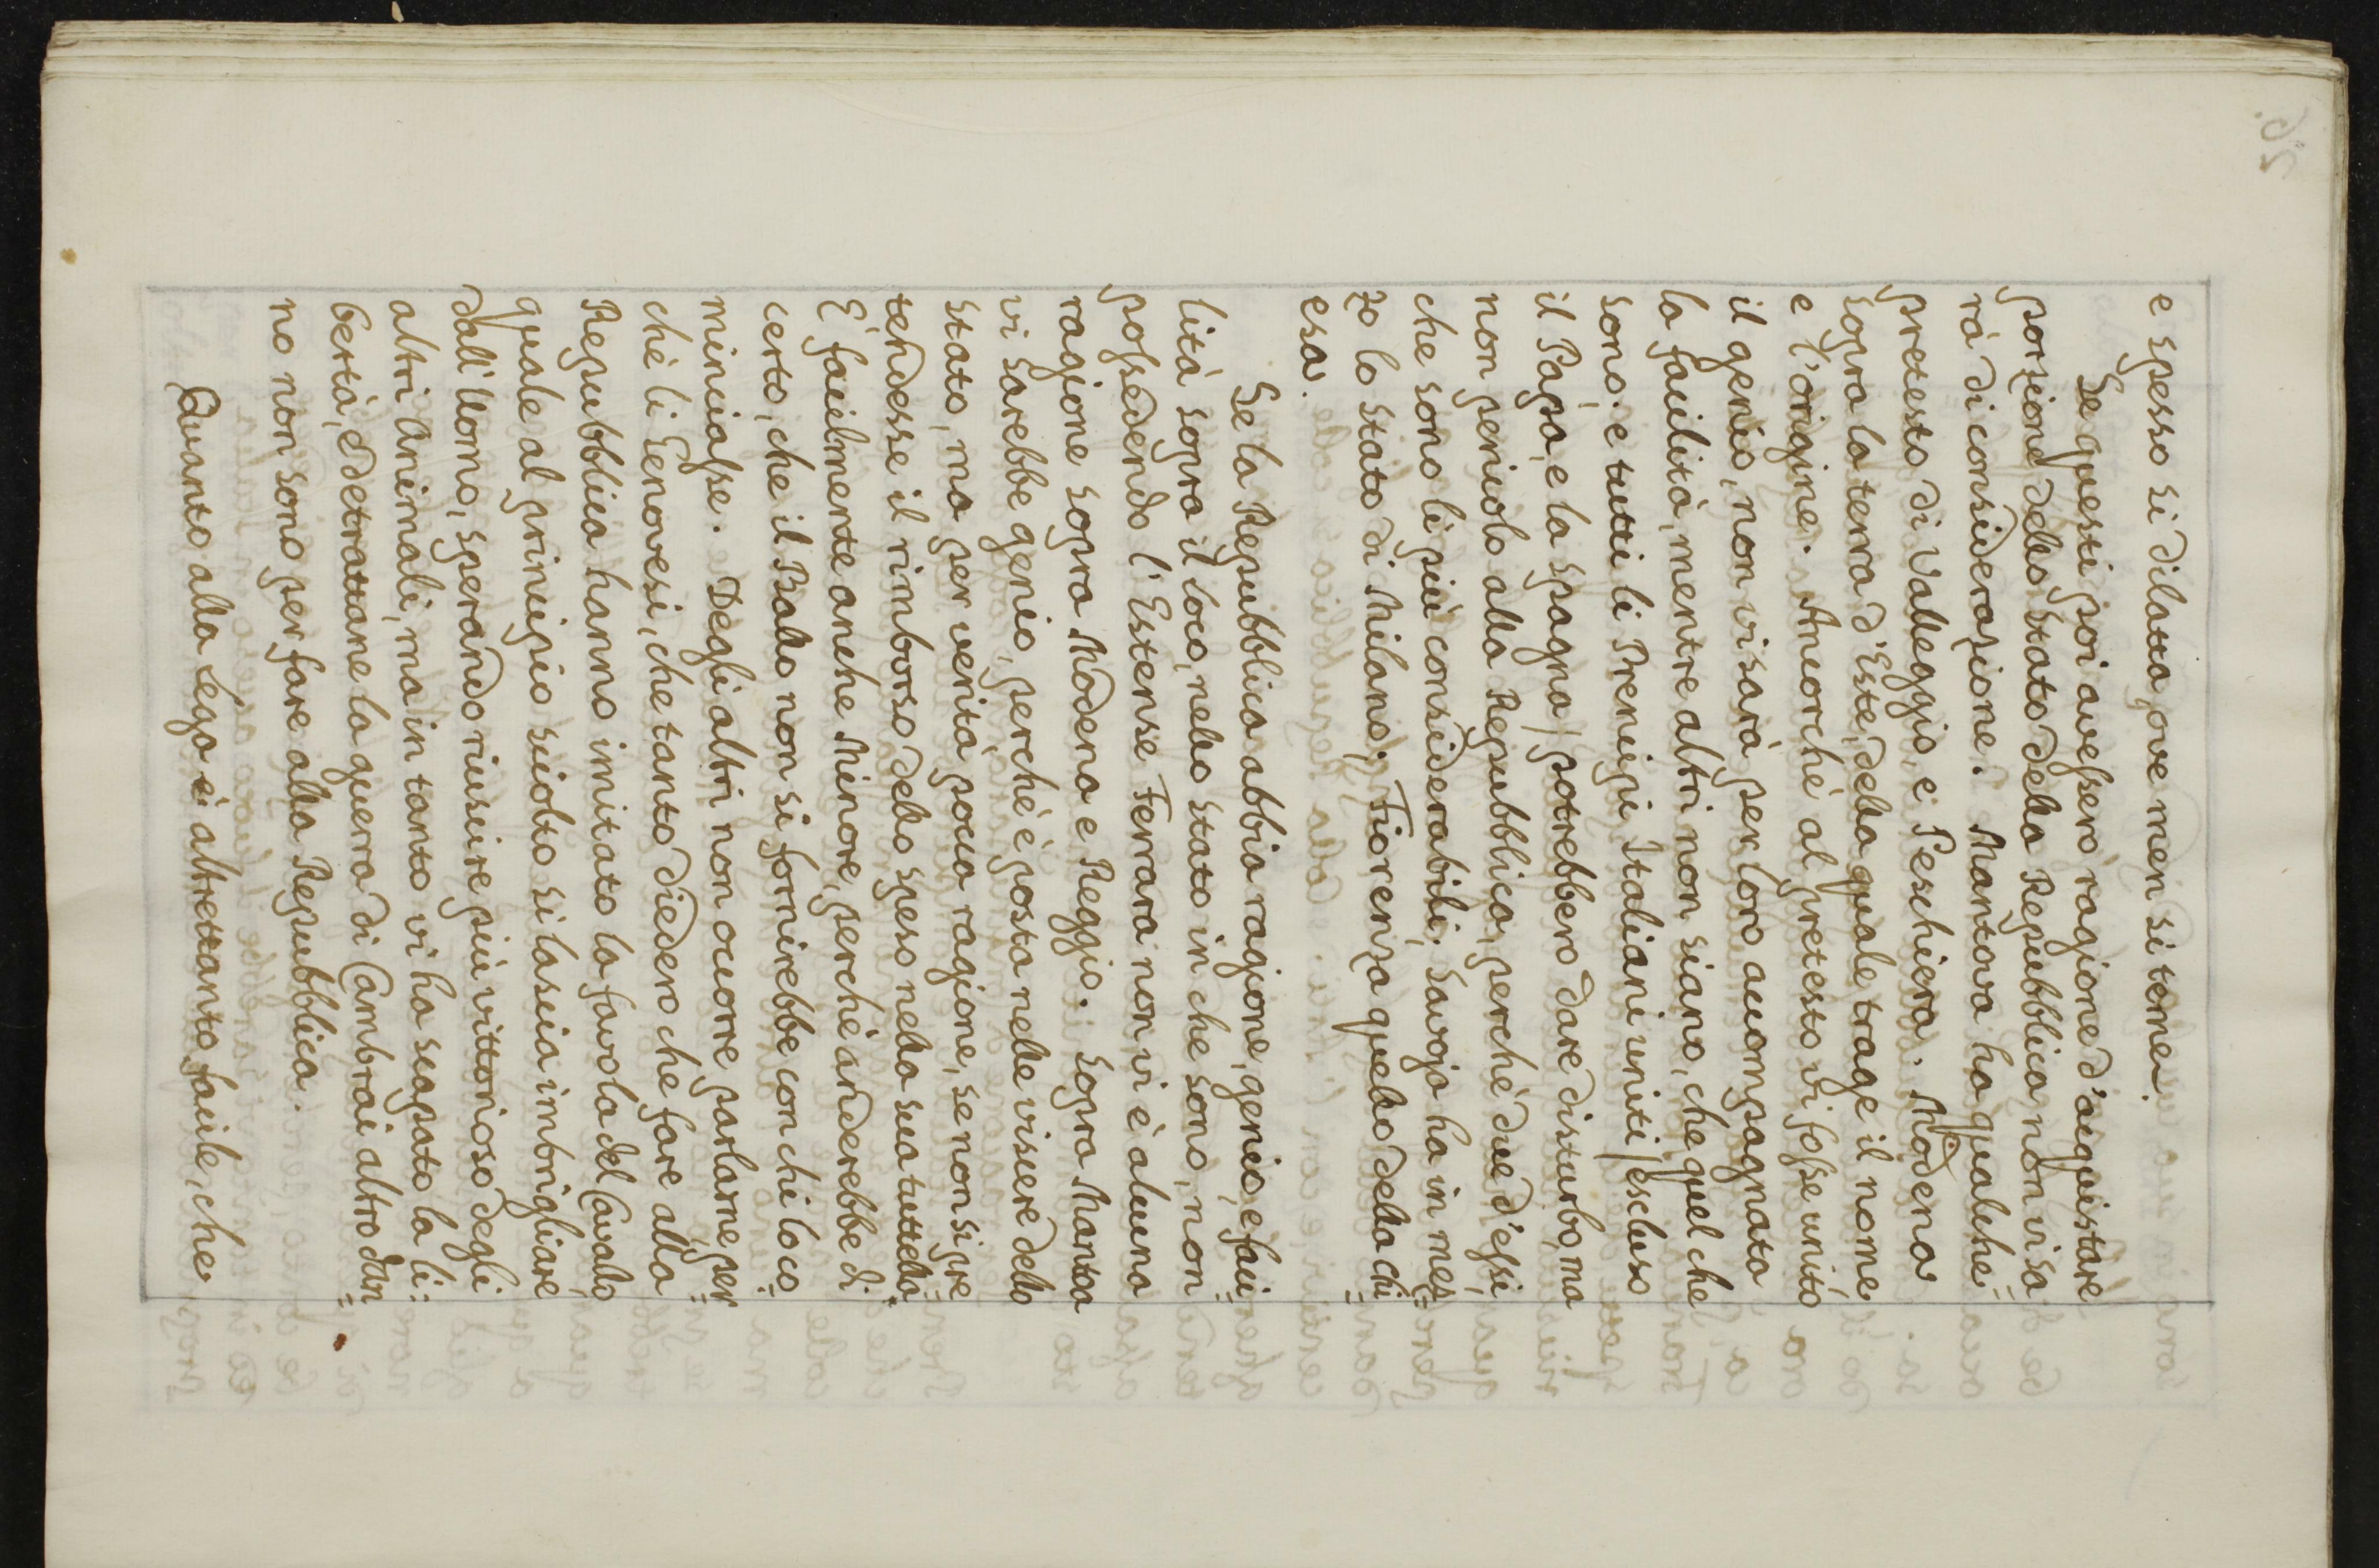 e spesso si dilatta, ove men si teme.
Se questi poi avessero ragione d'acquistare
porzione dello stato della Repubblica non vi sa
rà di considerazione. Mantova ha qualche
pretesto di Valleggio, e Peschiera. Modena
sopra la terra d'Este, della quale trage il nome
e l'origine. Ancorché al pretesto vi fosse unito
il genio, non vi sarà per loro accompagnata
la facilità, mentre altri non siano, che quel che
sono. e tutti li Prencipi Italiani uniti /escluso
il Papa, e la spagna/ potrebbero dare disturbo, ma
non periculo alla Repubblica, perché due d'essi
che sono li più considerabili, Savoja ha in mez=
zo lo stato di Milano, Fiorenza quello della chi=
esa.
Se la Repubblica abbia ragione, genio, e faci=
lità sopra il loco, nello stato in che sono, non
possedendo l'Estense Ferrara non vi è alcuna
ragione sopra Modena e Reggio. Sopra Mantoa
vi sarebbe genio, perché è posta nelle viscere dello
stato, ma per verità poca ragione, se non si pre=
tendesse il rimborso dello speso nella sua tuttella.
E' facilmente anche Minore, perché anderebbe di
certo, che il Ballo non si fornirebbe con chi lo co=
minciasse. Degli altri non occorre parlarne, per=
ché li Genovesi, che tanto diedero che fare alla
Repubblica hanno imitato la favola del Cavallo
quale al principio sciolto si lascia imbrigliare
dall'Uomo, sperando riuscire più vittorioso degli
altri Animali, ma in tanto vi ha scapato la li=
bertà, e detrattane la guerra di Cambrai altro dan=
no non sono per fare alla Repubblica.
Quanto alla Lega è altrettanto facile, che
26.